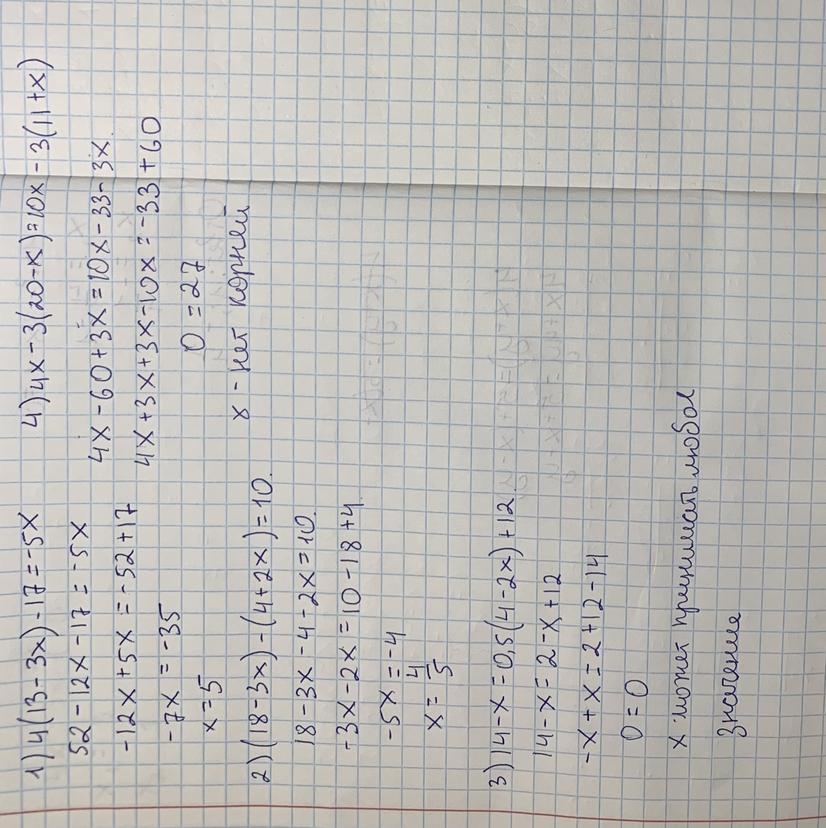 1) 4(13-3x)-17=-5x
52-12x-17=-5x
-12x+5x=-52+17
-7x=-35
x=5
2) (18-3x)-(4+2x)=10.
18-3x-4-2x=10.
-3x-2x=10-18+4.
-5x=-4
x=4/5
3) 14-x=0,5(4-2x)+12
14-x=2-x+12
-x+x=2+12-14
0=0
x может принимать любое
значение
4) 4x-3(20-x)=10x-3(11+x)
4x-60+3x=10x-33-3x.
4x+3x+3x-10x=-33+60
0=27
x-нет корней